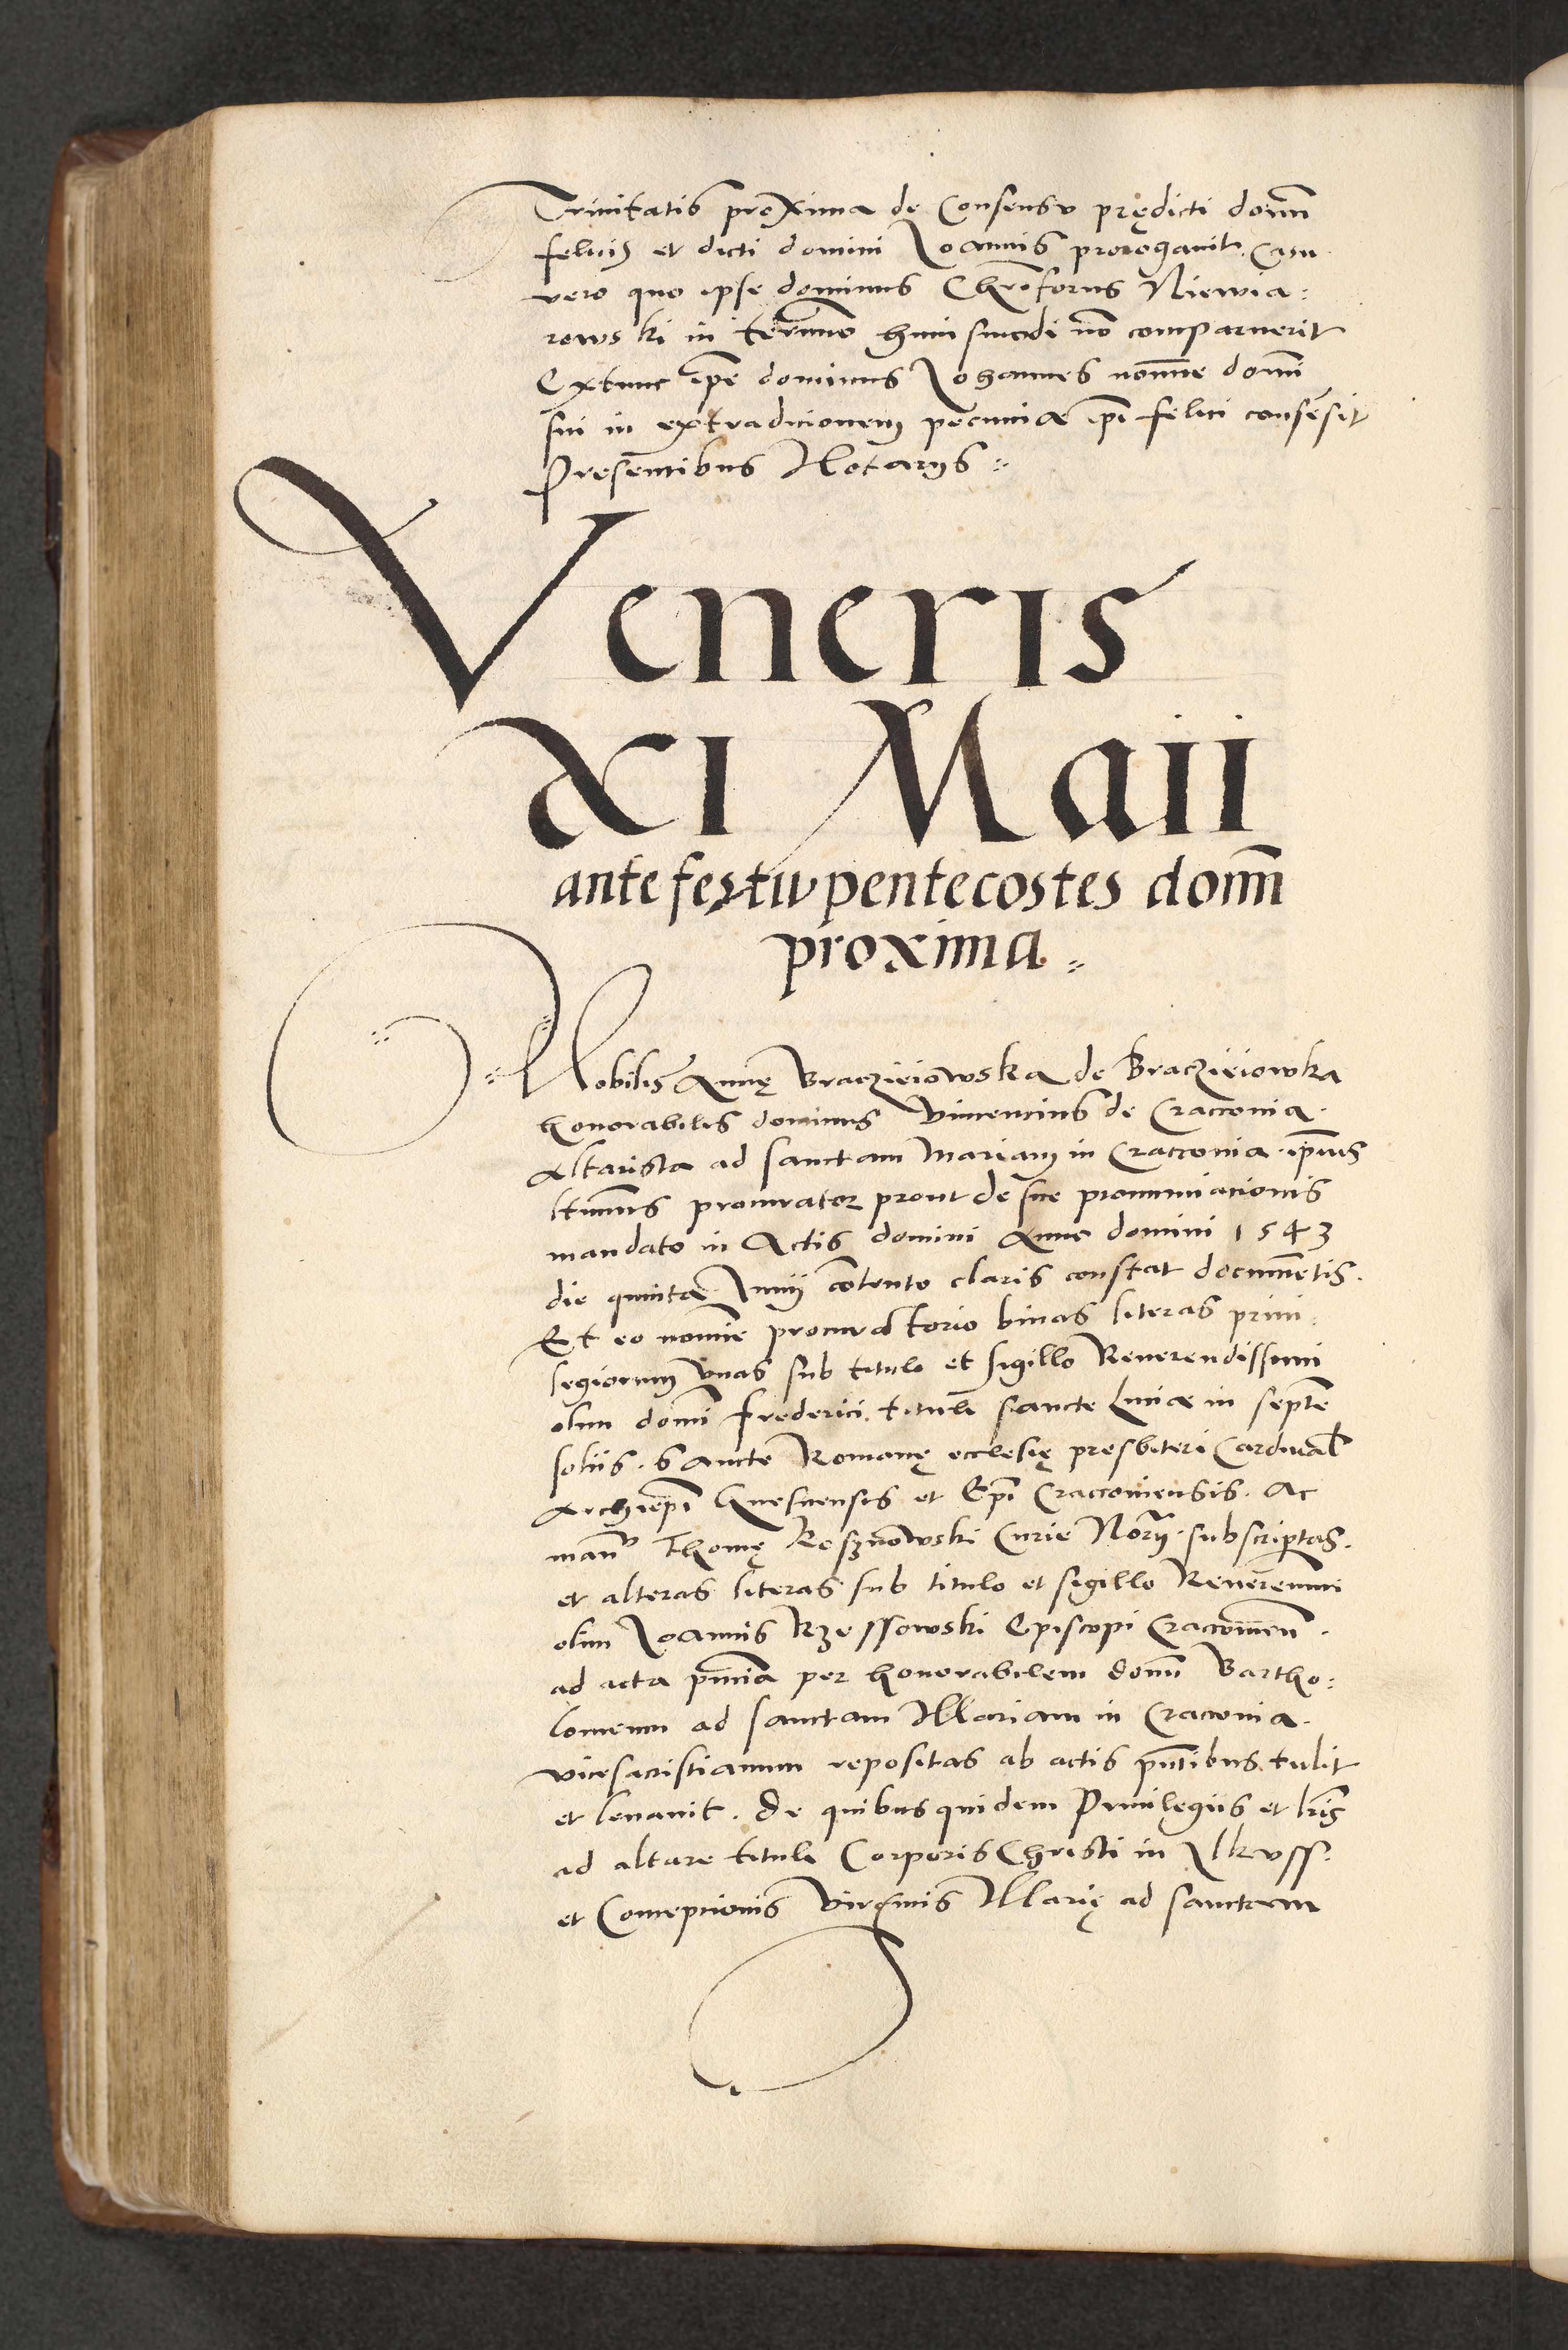 Trinitatis proxima de Consensu prędicti domi
felicis et dicti domini Joannis prorogavit. Casu
vero quo ipse dominus Chrõforus Niewia:
rowski in termino huiusmodi nõ comparuerit
Extunc ip̃e dominus Johannes nomine domi
sui in extradicionem pecuniæ ip̃i felici consẽsit
Presentibus Notarijs
Veneris
XI Maii
ante festũ pentecostes dom̃
proxima
Nobilis Annę Braczieiowska de Braczieiowka
honorabilis dominus Vincencius de Cracovia
Altarista ad sanctam Mariam in Cracovia ip̃ius
ltimus procurator prout de sue pronunciacionis
mandato in Actis domini Anno domini 1543
die quinta Junij contento claris constat documẽtis.
Et eo nomine procuratorio binas literas privi
legiorum vnas sub titulo et sigillo Reverendissimi
olim domi Frederici tituli sancte Luciæ in septẽ
soliis. Sancte Romanę ecclesię presbiteri Cardinal
Archiep̃i Gnesnensis et Ep̃i Cracoviensis. Ac
manu Thomę Rosznowski Curie Norij subscriptas.
et alteras literas sub titulo et sigillo Reverenmi
olim Joannis Rzessowski Episcopi Cracovien.
ad acta pñcia per honorabilem domi Bartho:
lomeum ad sanctam Mariam in Cracovia
vicesacristianum repositas ab actis pñtibus tulit
et levavit. De quibus quidem Privilegiis et lr̃is
ad altare tituli Corporis Christi in Ilkuss.
et Concepcionis Virginis Marię ad sanctam